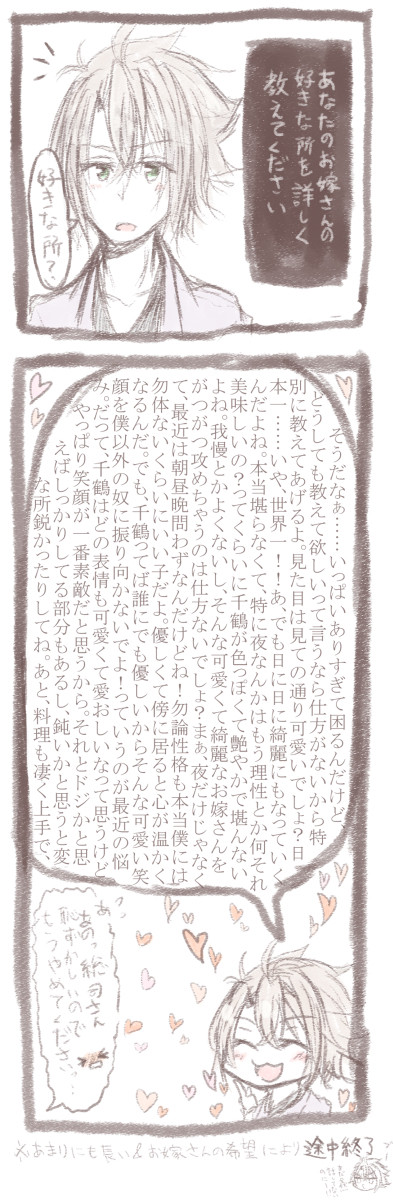 あなたのお嫁さんの
好きな所を詳しく
教えてください
好きな所？
そうだなぁ……いっぱいありすぎて困るんだけど、
どうしても教えて欲しいって言うなら仕方がないから特
別に教えてあげるよ。見た目は見ての通り可愛いでしょ？日
本一……いや、世界一！！あ、でも日に日に綺麗にもなっていく
んだよね。本当堪らなくて、特に夜なんかはもう理性とか何それ
美味しいの？ってくらいに千鶴が色っぽくて艶やかで堪んない
よね。我慢とかよくないし、そんな可愛くて綺麗なお嫁さんを
がつがつ攻めちゃうのは仕方ないでしょ？まぁ、夜だけじゃなく
て、最近は朝昼晩問わずなんだけどね！勿論性格も本当僕には
勿体ないくらいにいい子だよ。優しくて傍に居ると心が温かく
なるんだ。でも、千鶴ってば誰にでも優しいからそんな可愛い笑
顔を僕以外の奴に振り向かないでよ！っていうのが最近の悩
み。だって、千鶴はどの表情も可愛くて愛おしいなって思うけど
やっぱり笑顔が一番素敵だと思うから。それとドジかと思
えばしっかりしてる部分もあるし、鈍いかと思うと変
な所鋭かったりしてね。あと、料理も凄く上手で、
あっ
あのっ総司さん
恥ずかしいので
もうやめてください…
※あまりにも長い&お嫁さんの希望により途中終了